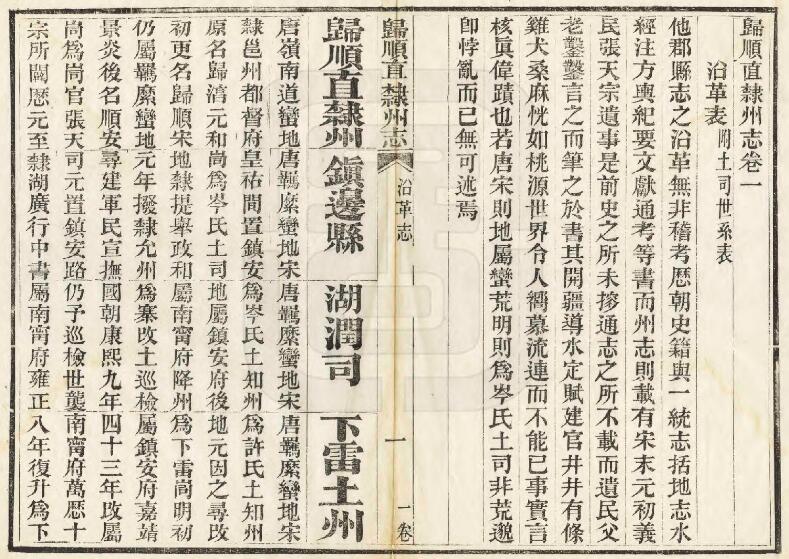 歸順直隸州志卷一
沿革表 附土司世系表
他郡縣志之沿革無非稽考歷朝史籍與一統志括地志水
經注方輿紀要文獻通考等書而州志則載有宋末元初義
民張天宗遺事是前史之所未搜通志之所不載而遺民父
老鑿鑿言之而筆之於書其開疆導水定賦建官井井有條
雞犬桑麻恍如桃源世界令人嚮慕流連而不能已事實言
核眞偉蹟也若唐宋則地屬蠻荒明則爲岑氏土司非荒邈
卽悖亂而已無可述焉
歸順直隸州志 沿革志 一 卷一
歸順直隸州 鎮邊縣 湖潤司 下雷土州
唐嶺南道蠻地 唐羈縻蠻地宋 唐羈縻蠻地宋 唐羈縻蠻地宋
隸邕州都督府 皇祐間置鎮安 爲岑氏土知州 爲許氏土知州
原名歸淳元和 峝爲岑氏土司 地屬鎮安府後 地元因之尋改
初更名歸順宋 地隸提舉政和 屬南甯府降州 爲下雷峝明初
仍屬羈縻蠻地 元年撥隸允州 爲寨改土巡檢 屬鎮安府嘉靖
景炎後名順安 尋建軍民宣撫 國朝康熙九年 四十三年改屬
峝爲峝官張天 司元置鎮安路 仍予巡檢世襲 南甯府萬歷十
宗所闢歷元至 隸湖廣行中書 屬南甯府雍正 八年復升爲下